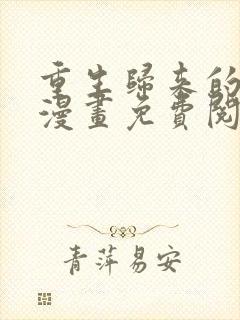 重生歸來的
漫畫免費閱
青萍易安